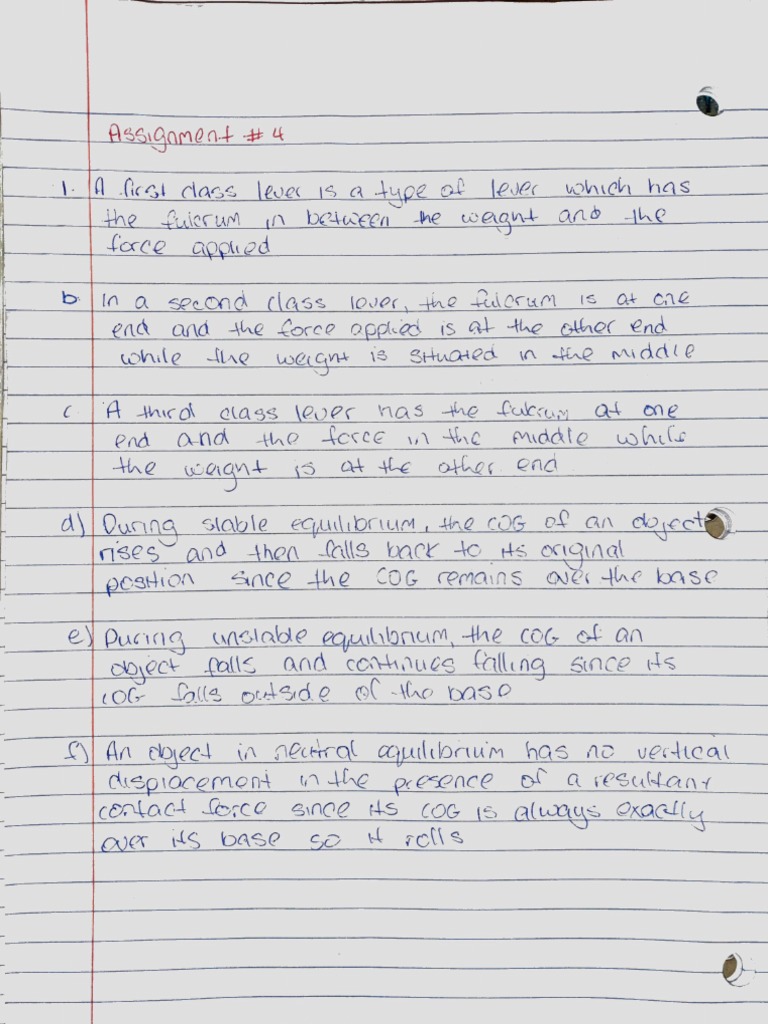 Assignment # 4
1. A first class lever is a type of lever which has
the fulcrum in between the weight and the
force applied
b. In a second class lever, the fulcrum is at one
end and the force applied is at the other end
while the weight is situated in the middle
c A third class lever has the fulcrum at one
end and the force in the middle while
the weight is at the other end
d) During stable equilibrium, the COG of an object
rises and then falls back to its original
position since the COG remains over the base
e) During unstable equilibrium, the COG of an
object falls and continues falling since its
COG falls outside of the base
f) An object in neutral equilibrium has no vertical
displacement in the presence of a resultant
contact force since its COG is always exactly
over its base so it rolls